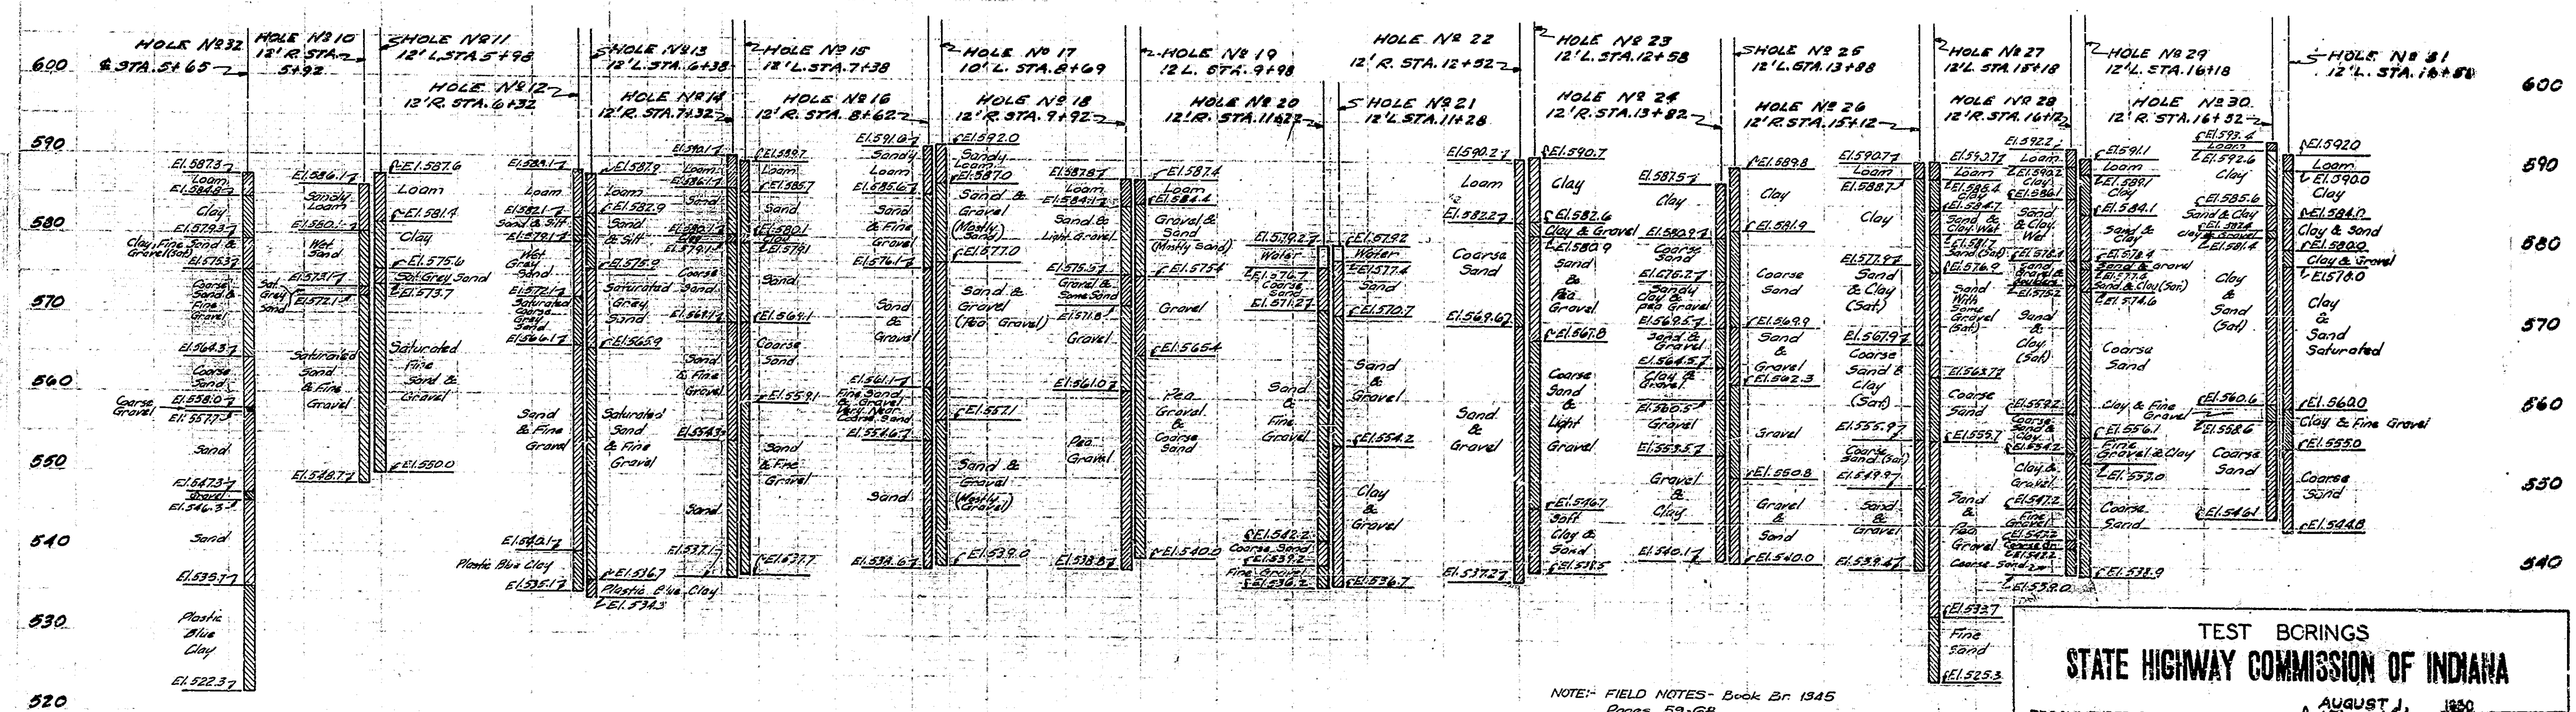 600
590
580
570
560
550
540
530
520
HOLE Nº 32
℄ STA. 5+65
El. 587.3
Loam
El. 584.8
Clay
El. 579.3
Clay, Fine Sand &
Gravel (Sat)
El. 575.3
Coarse
Sand &
Fine
Gravel
El. 564.3
Coarse
Sand
El. 558.0
Coarse
Gravel
El. 557.7
Sand
El. 547.3
Gravel
El. 546.3
Sand
El. 535.7
Plastic
Blue
Clay
El. 522.3
HOLE Nº 10
12' R. STA.
5+92
El. 586.1
Sandy
Loam
El. 580.1
Wet
Sand
El. 573.1
Sat.
Grey
Sand
El. 572.1
Saturated
Sand
& Fine
Gravel
El. 548.7
HOLE Nº 11
12' L. STA 5+98
El. 587.6
Loam
El. 581.4
Clay
El. 575.6
Sat. Grey Sand
El. 573.7
Saturated
Fine
Sand &
Gravel
El. 550.0
HOLE Nº 12
12' R. STA. 6+32
Loam
Sand & Silt
El. 579.1
Wet
Gray
Sand
El. 572.1
Saturated
Coarse
Grey
Sand
El. 566.1
Sand
& Fine
Gravel
El. 540.1
Plastic Blue Clay
El. 535.1
HOLE Nº 13
12' L. STA. 6+38
El. 587.9
Loam
El. 582.9
Sand
& Silt
El. 575.9
Saturated
Grey
Sand
El. 565.9
Saturated
Sand
& Fine
Gravel
El. 536.7
Plastic Blue Clay
El. 534.3
HOLE Nº 14
12' R. STA. 7+32
El. 590.1
Loam
El. 586.1
Sand
El. 579.1
Coarse
Sand
El. 569.1
Sand
& Fine
Gravel
El. 554.3
Sand
El. 537.1
HOLE Nº 15
12' L. STA. 7+38
El. 589.7
Loam
El. 585.7
Sand
El. 580.1
El. 579.1
Sand
El. 569.1
Coarse
Sand
El. 559.1
Sand
& Fine
Gravel
El. 537.7
HOLE Nº 16
12' R. STA. 8+62
El. 591.6
Sandy
Loam
El. 585.6
Sand
& Fine
Gravel
El. 576.1
Sand
&
Gravel
El. 561.1
Fine Sand
& Gravel
Very Near
Coarse Sand
El. 554.6
Sand
El. 538.6
HOLE Nº 17
10' L. STA. 8+69
El. 592.0
Sandy
Loam
El. 587.0
Sand &
Gravel
(Mostly
Sand)
El. 577.0
Sand &
Gravel
(Pea Gravel)
El. 557.1
Sand &
Gravel
(Mostly
Gravel)
El. 539.0
HOLE Nº 18
12' R. STA. 9+92
El. 587.8
Loam
El. 584.1
Sand &
Light Gravel
El. 575.5
Gravel &
Some Sand
El. 571.8
Gravel
El. 561.0
Pea
Gravel
El. 538.8
HOLE Nº 19
12 L. STA. 9+98
El. 587.4
Loam
El. 584.4
Gravel &
Sand
(Mostly Sand)
El. 575.4
Gravel
El. 565.4
Pea
Gravel
&
Coarse
Sand
El. 540.0
HOLE Nº 20
12' R. STA. 11+22
El. 579.2
Water
El. 576.7
Coarse
Sand
El. 571.2
Sand
&
Fine
Gravel
El. 542.2
Coarse Sand
El. 539.2
Fine Gravel
El. 536.2
HOLE Nº 21
12' L STA. 11+28
El. 579.2
Water
El. 577.4
Sand
El. 570.7
Sand
&
Gravel
El. 554.2
Clay
&
Gravel
El. 536.7
HOLE Nº 22
12' R. STA. 12+52
El. 590.2
Loam
El. 582.2
Coarse
Sand
El. 569.6
Sand
&
Gravel
El. 537.2
HOLE Nº 23
12' L. STA. 12+58
El. 590.7
Clay
El. 582.6
Clay & Gravel
El. 580.9
Sand
&
Pea
Gravel
El. 567.8
Coarse
Sand
&
Light
Gravel
El. 546.7
Soft
Clay &
Sand
El. 538.5
HOLE Nº 24
12' R. STA. 13+82
El. 587.5
Clay
El. 580.9
Coarse
Sand
El. 575.2
Sandy
Clay &
Pea Gravel
El. 569.5
Sand &
Gravel
El. 564.5
Clay &
Gravel
El. 560.5
Gravel
El. 553.5
Gravel
&
Clay
El. 540.1
HOLE Nº 25
12' L. STA. 13+88
El. 589.8
Clay
El. 581.9
Coarse
Sand
El. 569.9
Sand
&
Gravel
El. 562.3
Gravel
El. 550.8
Gravel
&
Sand
El. 540.0
HOLE Nº 26
12' R. STA. 15+12
El. 590.7
Loam
El. 588.7
Clay
El. 577.9
Sand
& Clay
(Sat.)
El. 567.9
Coarse
Sand &
Clay
(Sat.)
El. 555.9
Coarse
Sand (Sat.)
El. 549.9
Sand
&
Gravel
El. 539.4
HOLE Nº 27
12' L. STA. 15+18
Loam
El. 588.4
Clay
El. 584.7
Sand &
Clay Wet
El. 581.7
Sand (Sat)
El. 576.9
Sand
With
Some
Gravel
(Sat.)
El. 563.7
Coarse
Sand
El. 555.7
Sand
&
Pea
Gravel
El. 533.7
Fine
Sand
El. 525.3
HOLE Nº 28
12' R. STA. 16+12
El. 592.2
Loam
El. 590.2
Clay
El. 586.1
Sand
& Clay
Wet
El. 578.4
Sand
Gravel &
Boulders
El. 575.2
Sand
&
Clay
(Sat)
El. 559.2
Coarse
Sand &
Clay
El. 554.2
Clay &
Gravel
El. 547.2
Fine
Gravel
Coarse Sand
El. 539.0
HOLE Nº 29
12' L. STA. 16+18
El. 591.1
Loam
El. 589.1
Clay
El. 584.1
Sand &
Clay
El. 578.4
Sand & gravel
El. 577.4
Sand & Clay (Sat.)
El. 574.6
Coarse
Sand
Clay & Fine
Gravel
El. 556.1
Fine
Gravel & Clay
Coarse
Sand
El. 538.9
HOLE Nº 30
12' R. STA. 16+52
El. 593.4
Loam
El. 592.6
Clay
El. 585.6
Sand & Clay
Clay & Gravel
El. 581.4
Clay
&
Sand
(Sat)
El. 560.6
El. 558.6
Coarse
Sand
El. 546.1
HOLE Nº 31
El. 592.0
Loam
El. 590.0
Clay
El. 584.0
Clay & Sand
El. 580.0
Clay & Gravel
El. 578.0
Clay
&
Sand
Saturated
El. 560.0
Clay & Fine Gravel
El. 555.0
Coarse
Sand
El. 544.8
600
590
580
570
560
550
540
NOTE:- FIELD NOTES- Book Br. 1345
Pages 59-68
TEST BORINGS
STATE HIGHWAY COMMISSION OF INDIANA
AUGUST 1,